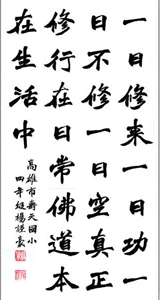 一日修來一日功一
日不修一日空真正
修行在日常佛道本
在生活中
高雄市壽天國小
四年級楊豪